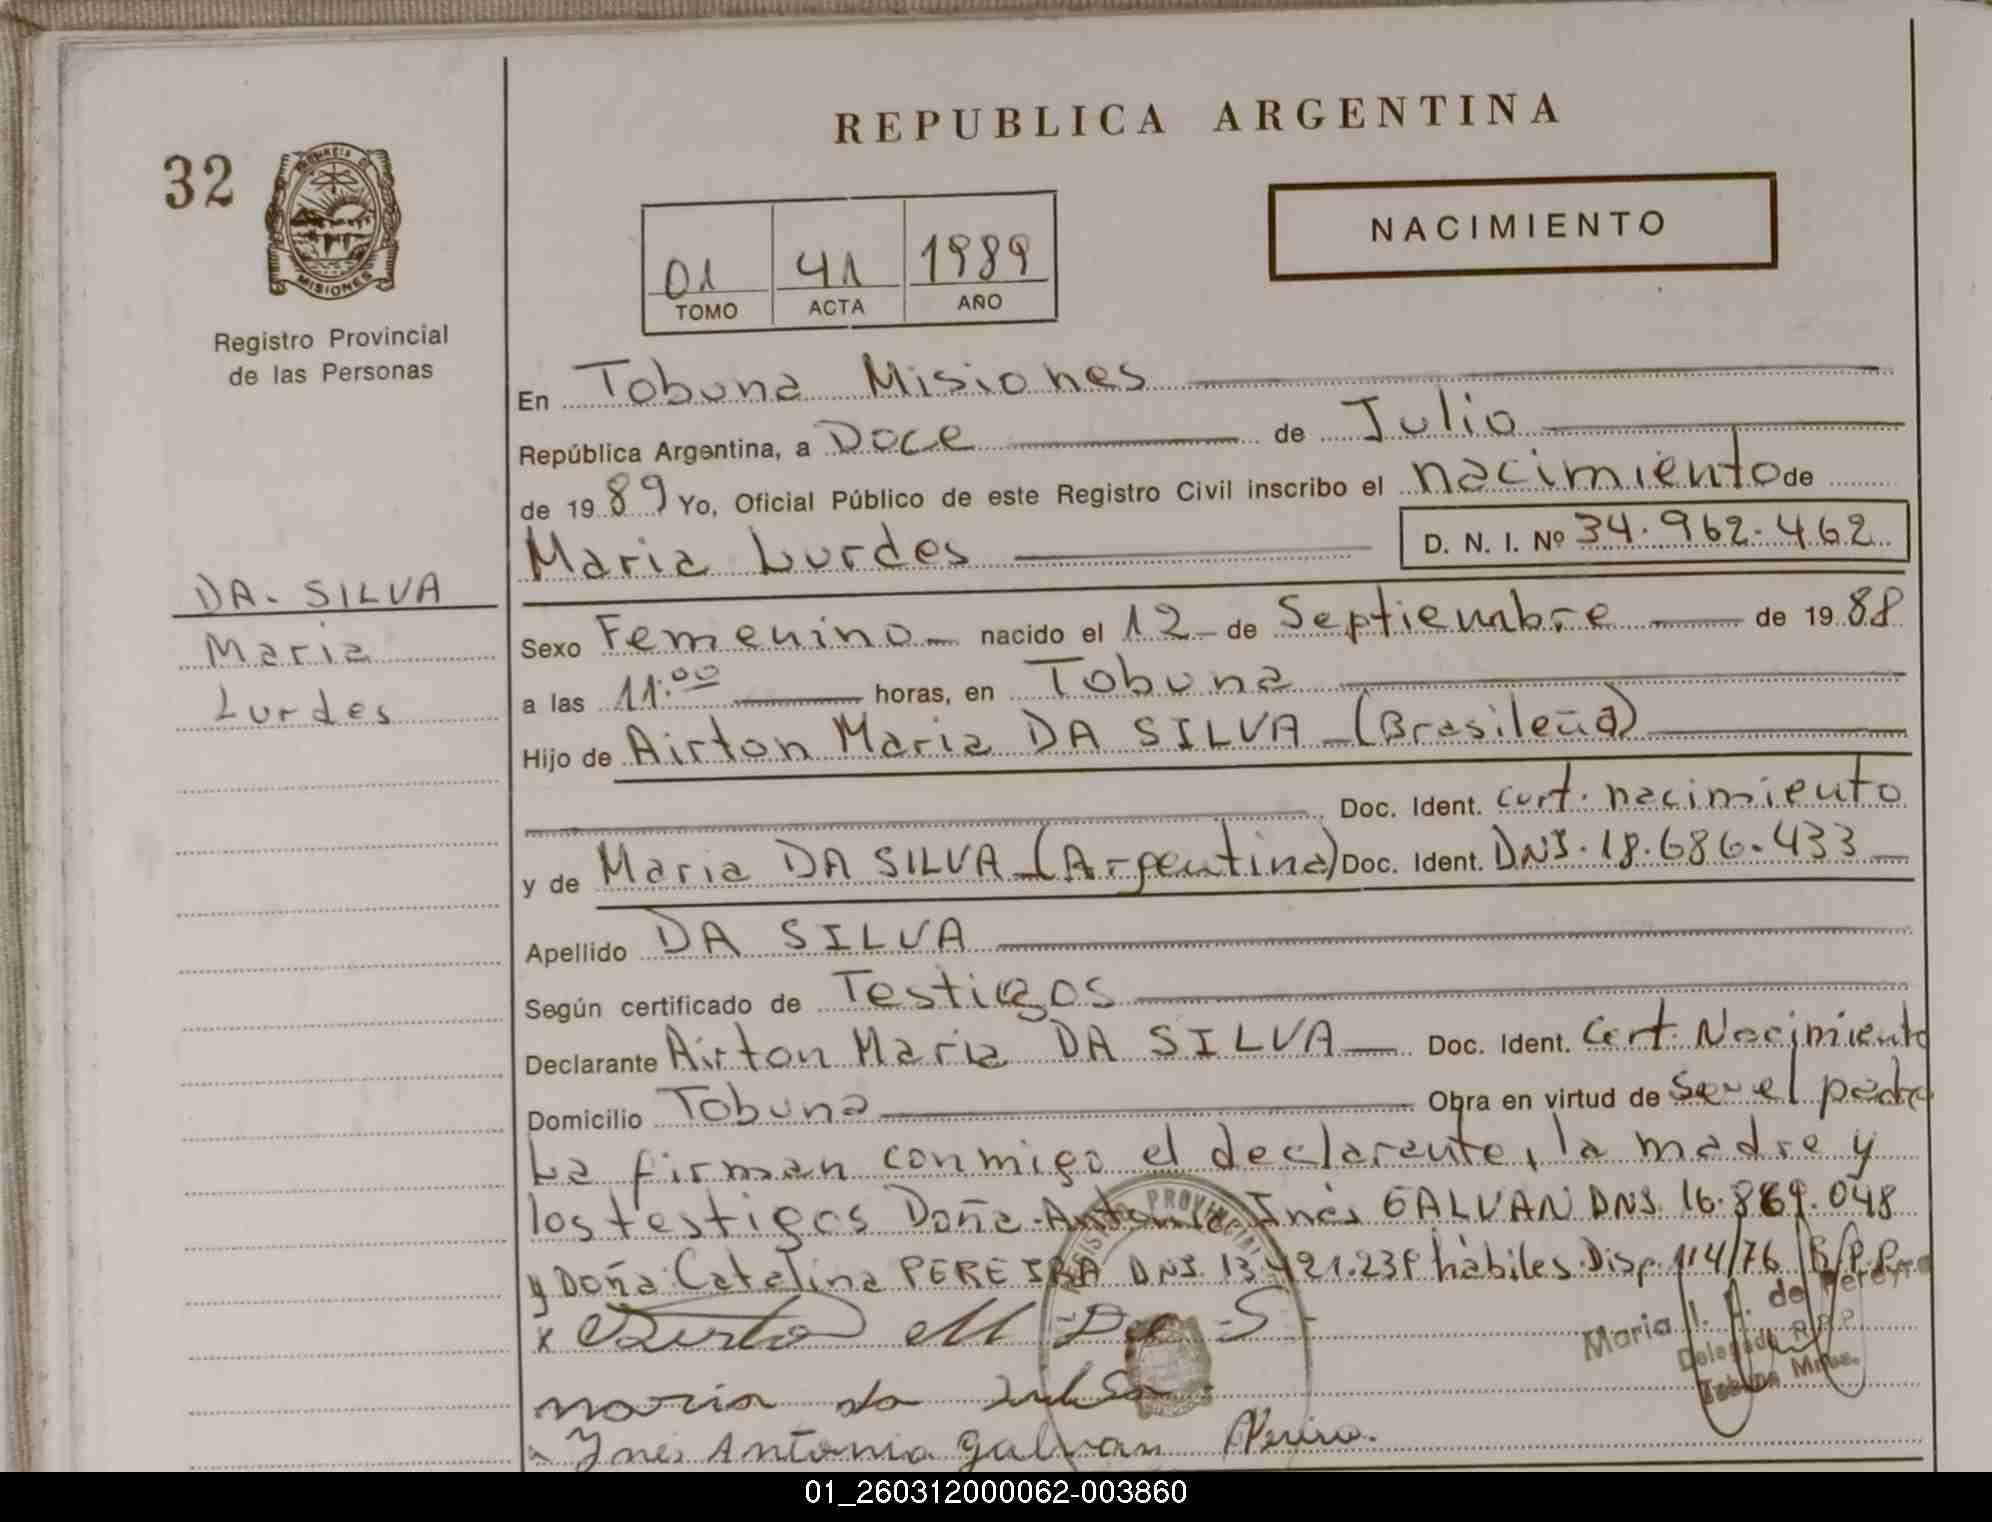 REPUBLICA ARGENTINA
32
PROVINCIA DE
MISIONES
Registro Provincial
de las Personas
NACIMIENTO
01 41 1989
TOMO ACTA AÑO
En Tobuna Misiones
República Argentina, a Doce de Julio
de 1989 Yo, Oficial Público de este Registro Civil inscribo el nacimiento de
Maria Lurdes D. N. I. Nº 34.962.462
DA. SILVA
Maria
Lurdes
Sexo Femenino nacido el 12 de Septiembre de 1988
a las 11:00 horas, en Tobuna
Hijo de Airton Maria DA SILVA (Brasileña)
Doc. Ident. cert. nacimiento
y de Maria DA SILVA (Argentina) Doc. Ident. DNI. 18.686.433
Apellido DA SILVA
Según certificado de Testigos
Declarante Airton Maria DA SILVA Doc. Ident. Cert. Nacimiento
Domicilio Tobuna Obra en virtud de ser el padre
La firman conmigo el declarante, la madre y
los testigos Doña Antonia Inés GALVAN DNI. 16.869.048
y Doña Catalina PEREIRA DNI. hábiles Disp. 114/76
x M Da S
Maria da Silva
Ynes Antonia Galvan
Maria I. de Pereyra
Delegada R.P.P.
Tobuna Mnes.
01_260312000062-003860